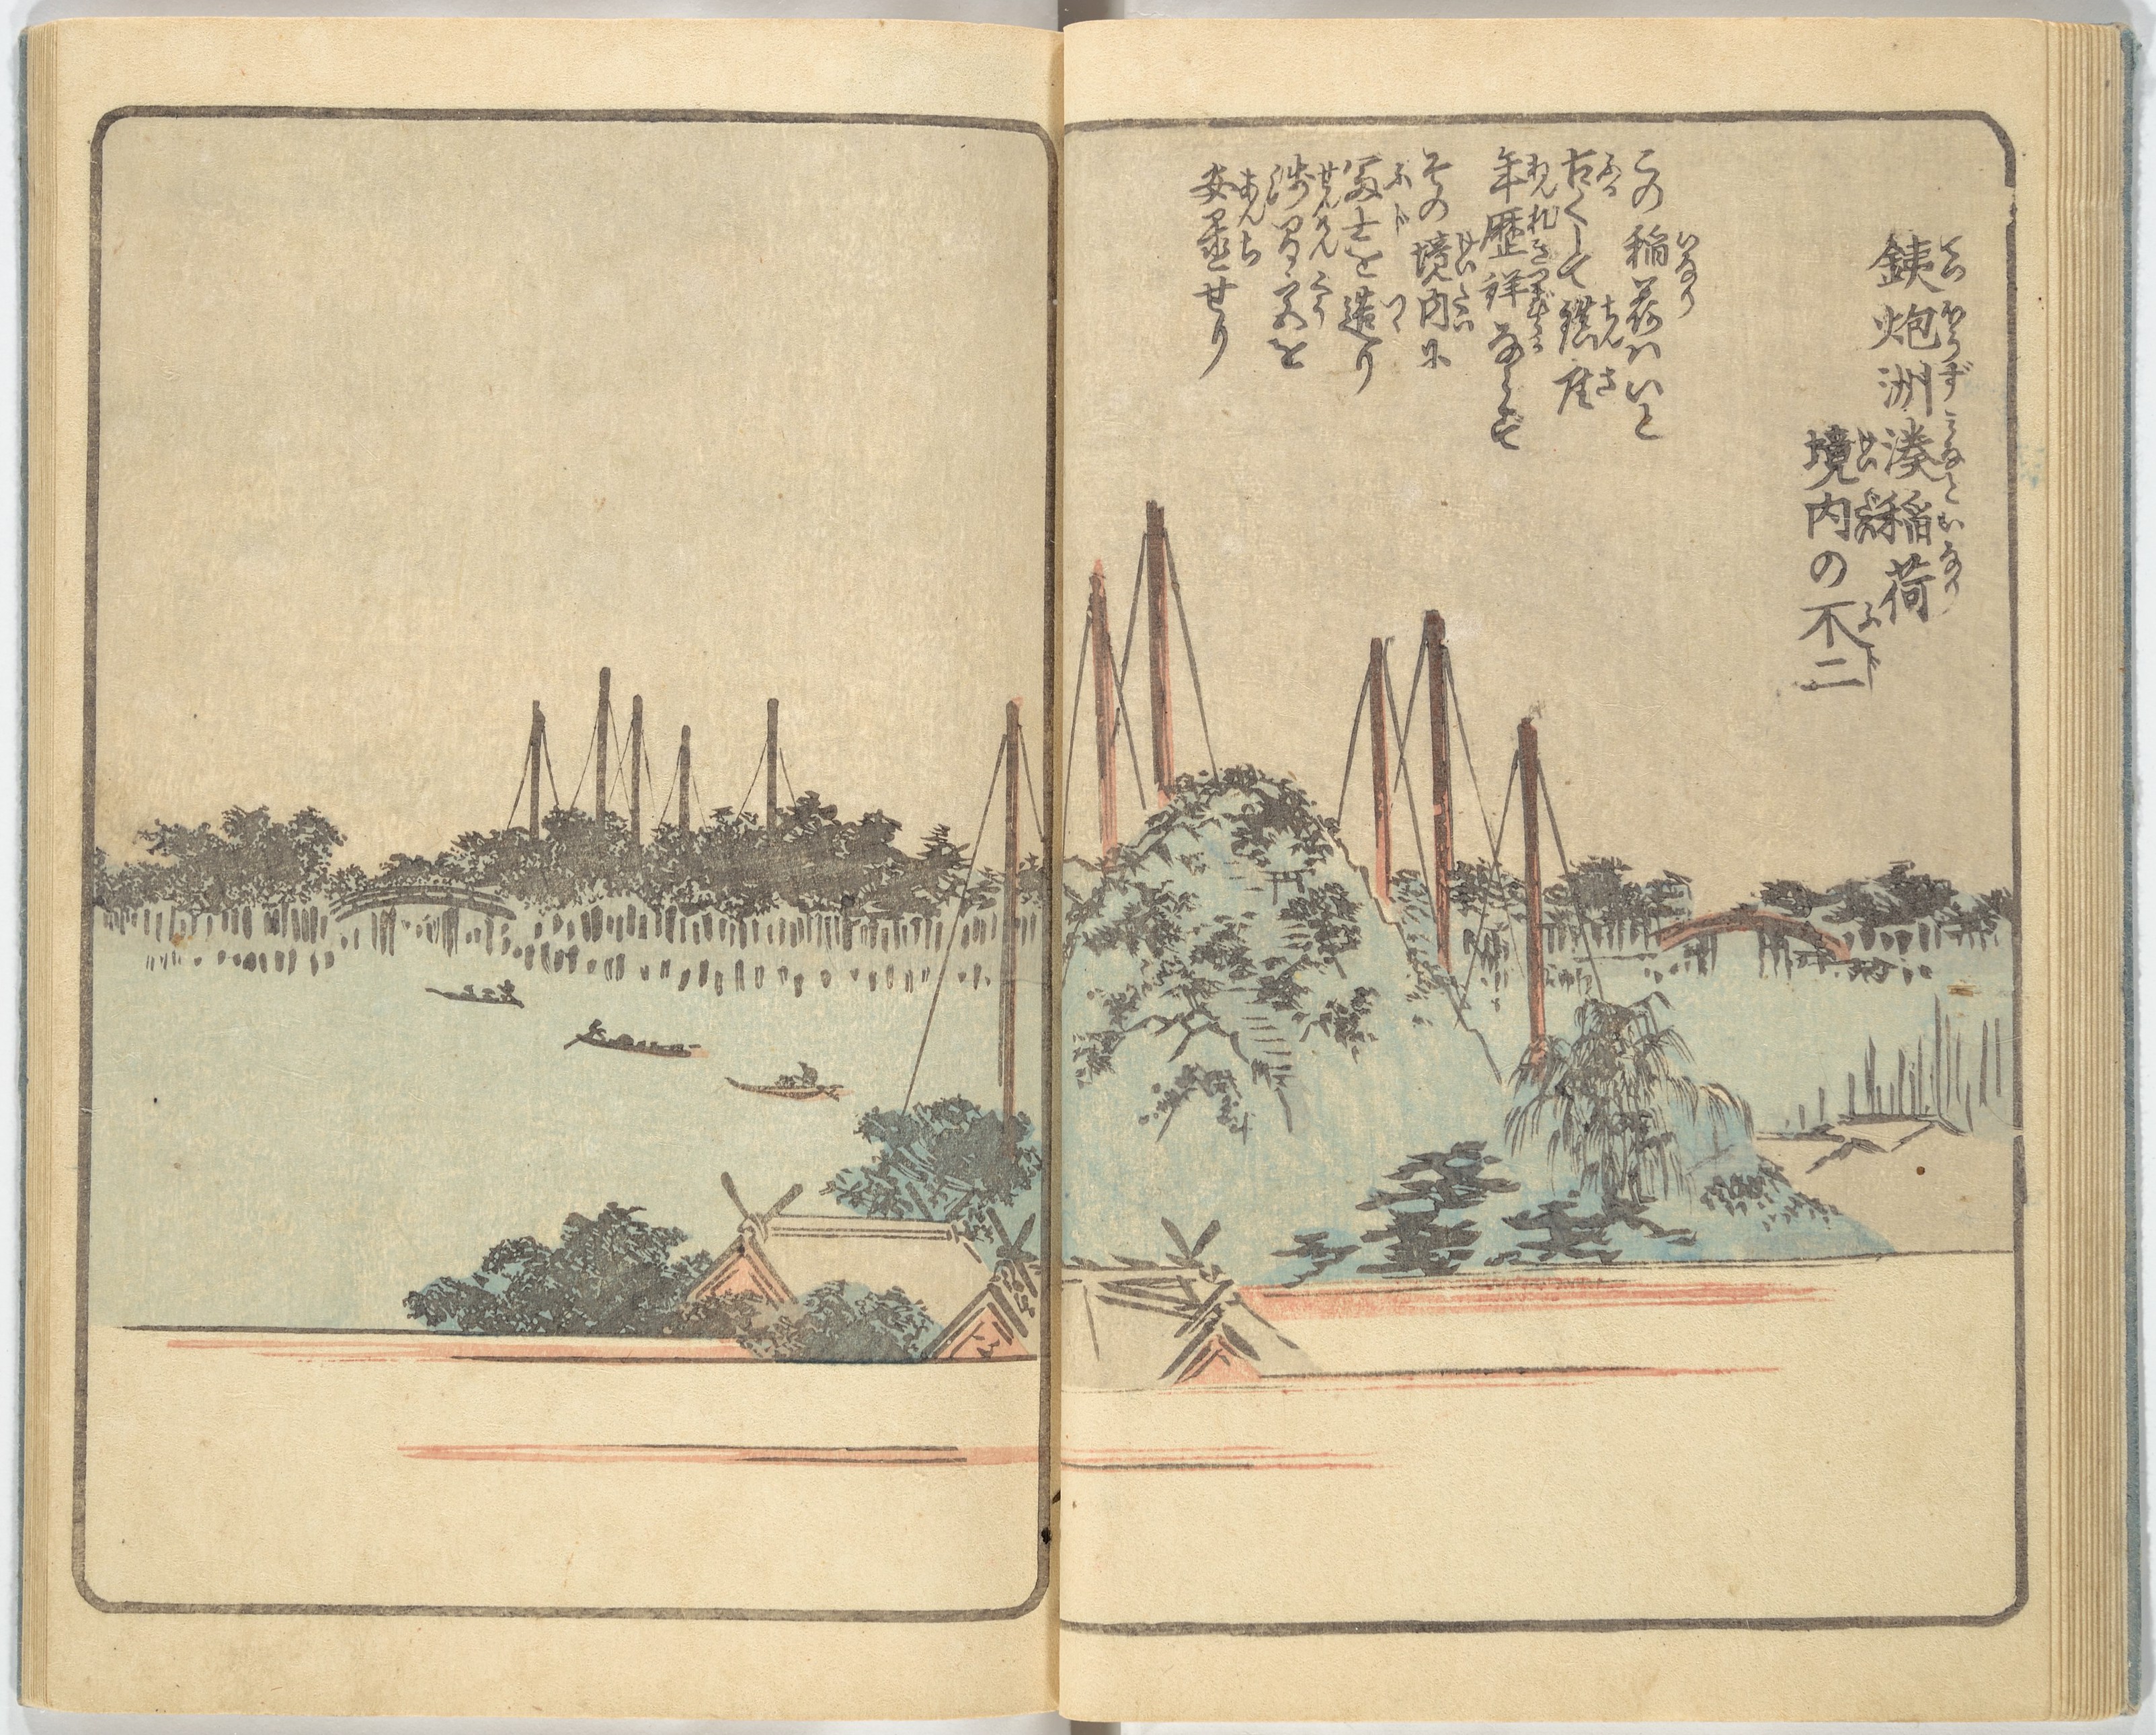 銕炮洲湊稲荷
境内の不二
この稲荷ハいと
古くして鎮座
年歴詳ならず
その境内に
冨士を造り
浅間宮を
安置せり